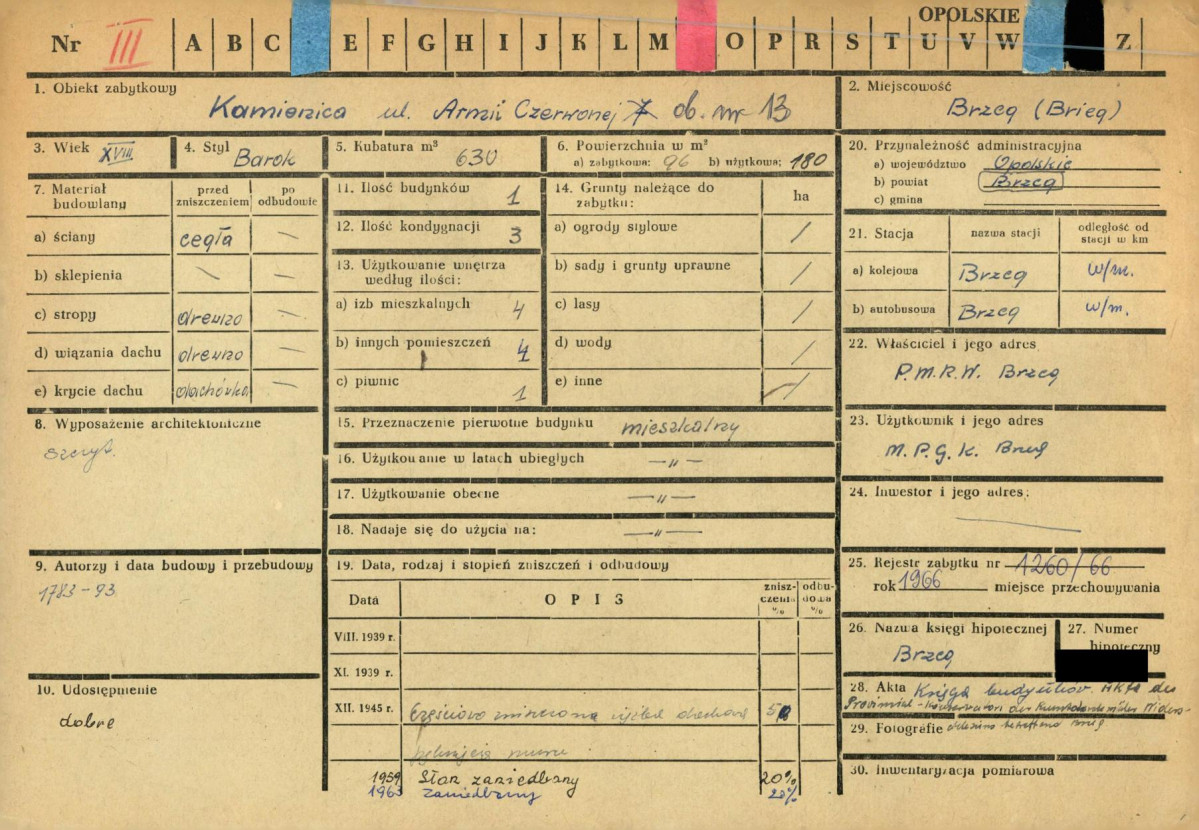 OPOLSKIE
Nr III A B C E F G H I J K L M O P R S T U V W Z
1. Obiekt zabytkowy
Kamienica ul. Armii Czerwonej 7 ob. nr 13
2. Miejscowość
Brzeg (Brieg)
3. Wiek XVIII
4. Styl Barok
5. Kubatura m³ 630
6. Powierzchnia w m²
a) zabytkowa: 96 b) użytkowa: 180
7. Materiał budowlany
przed zniszczeniem
po odbudowie
a) ściany cegła —
b) sklepienia \ —
c) stropy drewno —
d) wiązania dachu drewno —
e) krycie dachu dachówka —
8. Wyposażenie architektoniczne
szczyt.
9. Autorzy i data budowy i przebudowy
1783-93
10. Udostępnienie
dobre
11. Ilość budynków 1
12. Ilość kondygnacji 3
13. Użytkowanie wnętrza według ilości:
a) izb mieszkalnych 4
b) innych pomieszczeń 4
c) piwnic 1
14. Grunty należące do zabytku:
ha
a) ogrody stylowe /
b) sady i grunty uprawne /
c) lasy /
d) wody /
e) inne /
15. Przeznaczenie pierwotne budynku mieszkalny
16. Użytkowanie w latach ubiegłych —"—
17. Użytkowanie obecne —"—
18. Nadaje się do użycia na: —"—
19. Data, rodzaj i stopień zniszczeń i odbudowy
Data
OPIS
zniszczenia %
odbudowa %
VIII. 1939 r.
XI. 1939 r.
XII. 1945 r. Częściowo zniszczona dachowa
muru
1959 Stan zaniedbany 20%
1963 zaniedbany 20%
20. Przynależność administracyjna
a) województwo Opolskie
b) powiat Brzeg
c) gmina
21. Stacja
nazwa stacji
odległość od stacji w km
a) kolejowa Brzeg w/m.
b) autobusowa Brzeg w/m.
22. Właściciel i jego adres
P.M.R.W. Brzeg
23. Użytkownik i jego adres
M.P.G.K. Brzeg
24. Inwestor i jego adres:
25. Rejestr zabytku nr 1260/66
rok 1966 miejsce przechowywania
26. Nazwa księgi hipotecznej
Brzeg
27. Numer hipoteczny
28. Akta Księga budynków. Akta des
Provinzial-Konservators der Kunstdenkmäler Nieders-
29. Fotografie
30. Inwentaryzacja pomiarowa